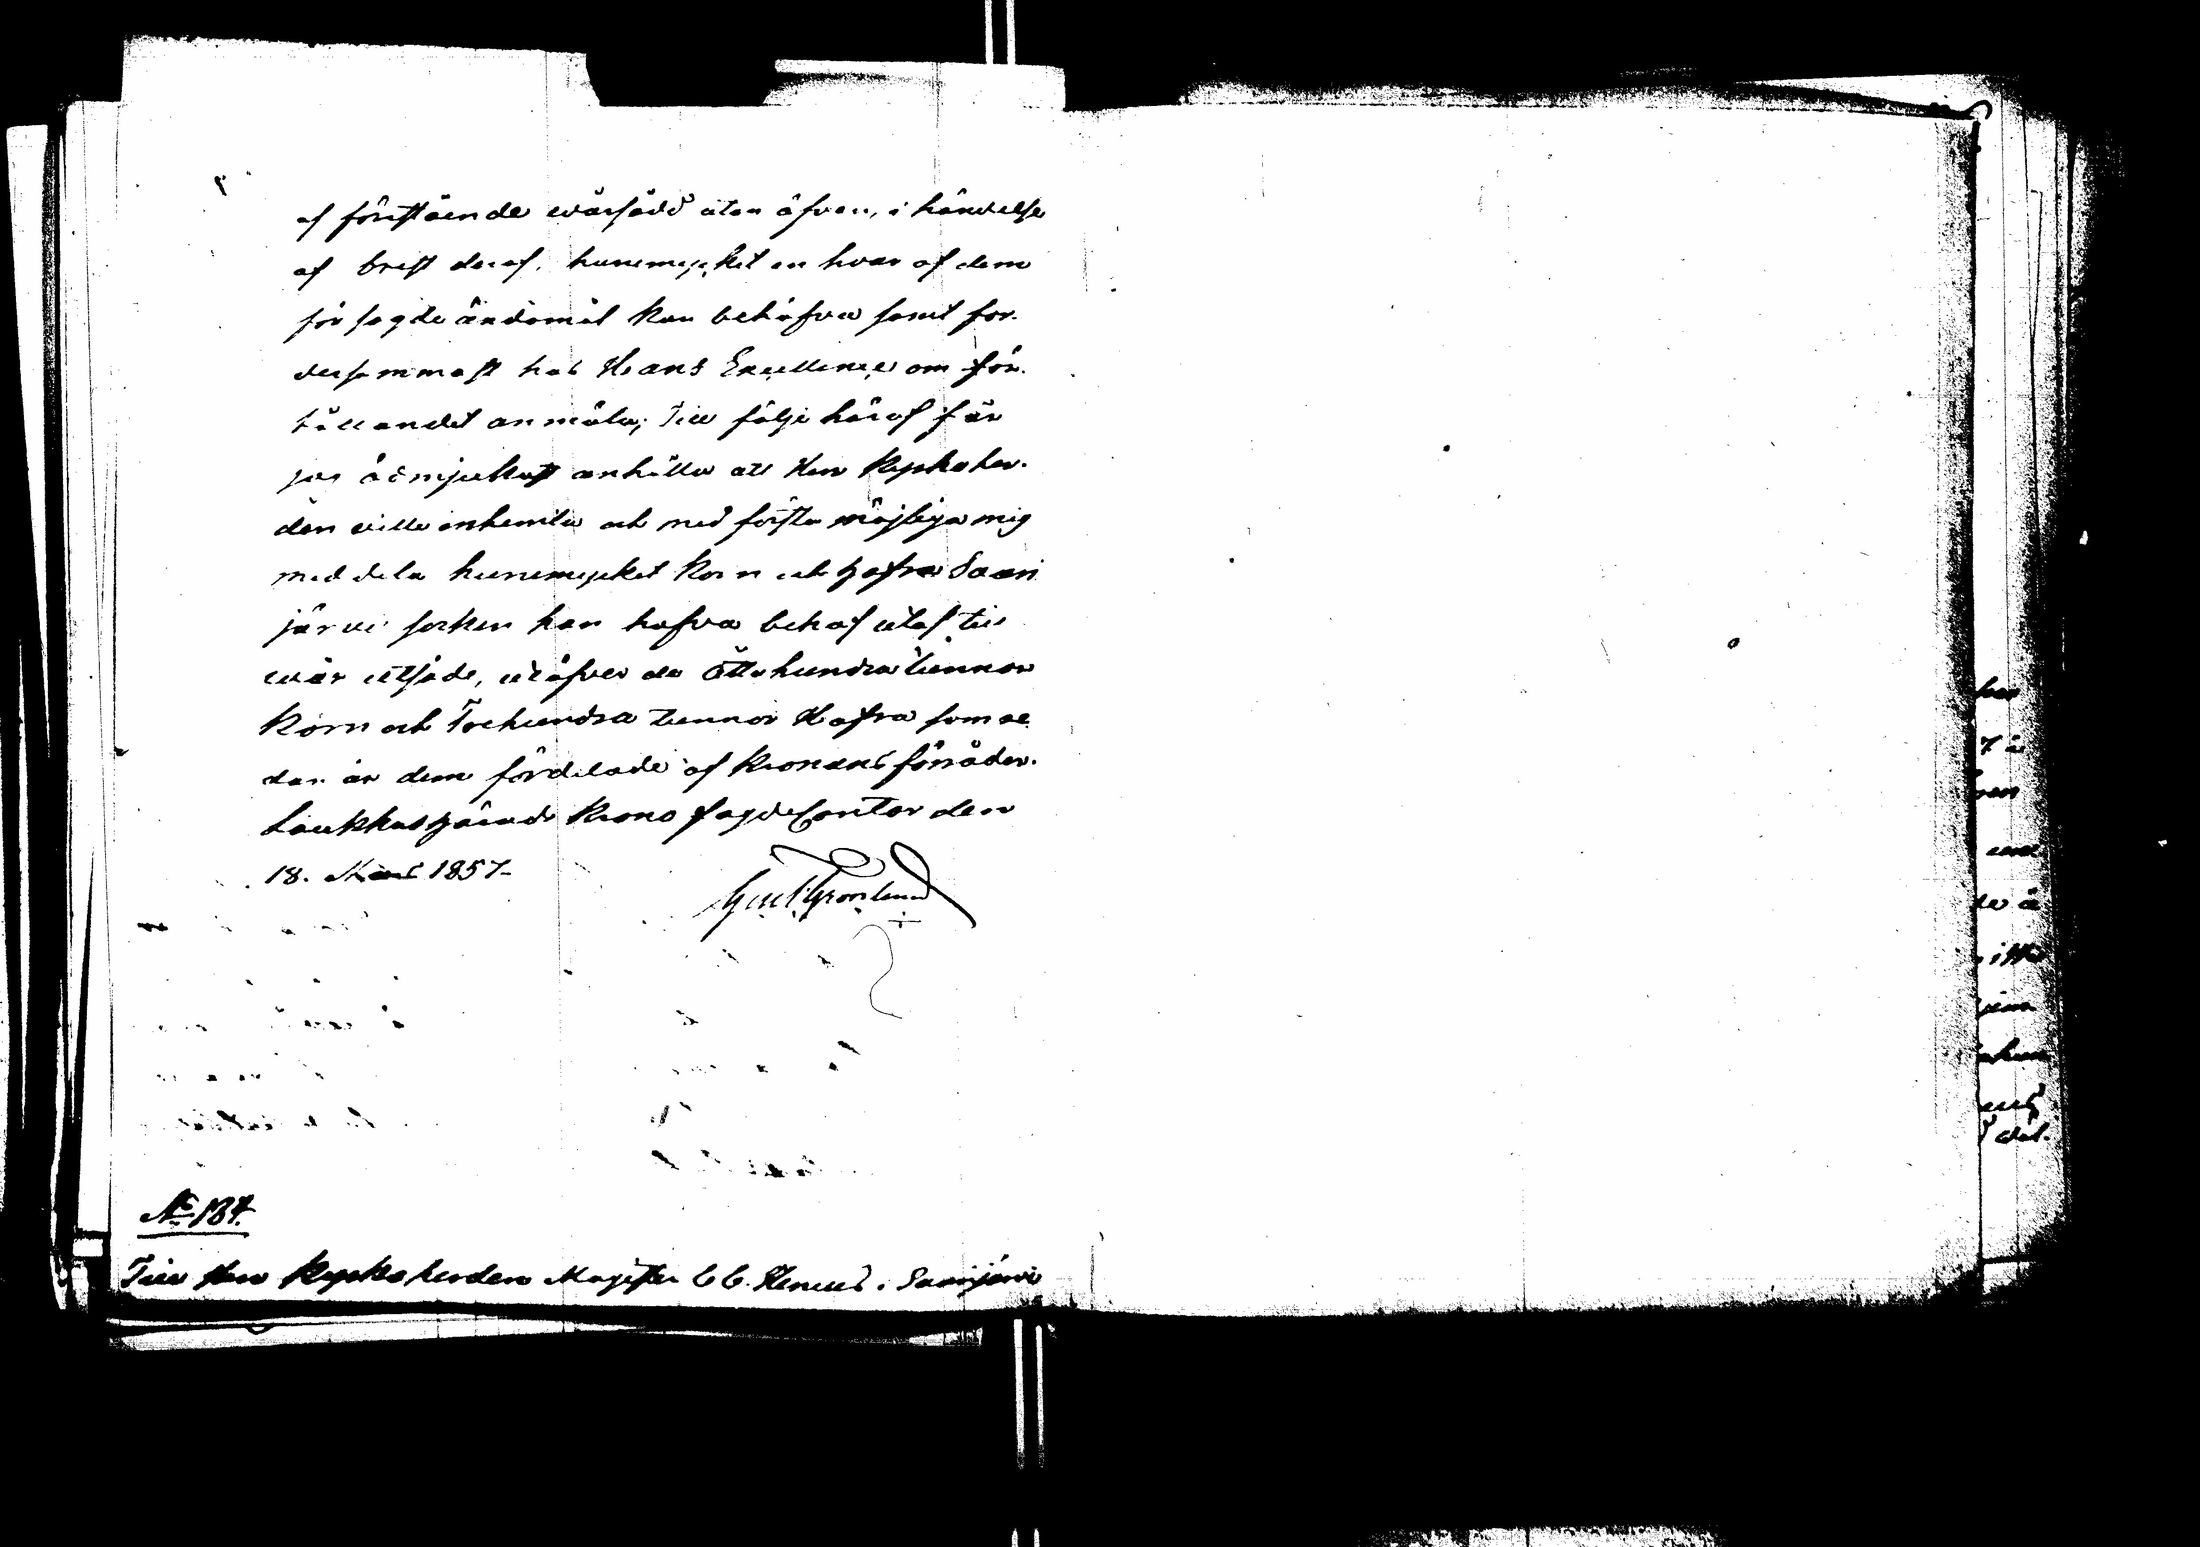 af förestående wårsådd utan äfven, i händelse
af brist deraf, hurumycket en hvar af dem
för sagde ändamål kan behöfva samt for-
dersammast hos Hans Excellence om för-
hållandet anmäla; Till följe häraf får
jag ödmjukast anhålla att Herr Kyrkoher-
den ville inhemta och med första möjliga mig
meddela hurumycket Korn och Hafra Saari
järvi socken kan hafva behof utaf till
wår utsäde, utöfver de Åttahundra tunnor
Korn och Trehundra tunnor Hafra som re
dan är dem fördelade af Kronans förråder.
Laukkas Härads Krono Fogde Contor den
18. Mars 1857.
Gust. Grönlund
No 184.
Till Herr Kyrkoherden Magister C C. i Saarijärvi
7 å